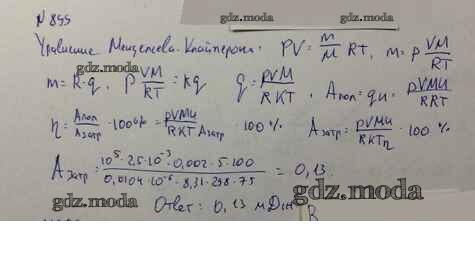 № 895
gdz.moda
Уравнение Менделеева-Клайперона. PV = m/M RT, m = p VM/RT
gdz.moda
m = k·q, p VM/RT = kq q = pVM/RKT, Aпол = qu = pVMu/RKT
gdz.moda
η = Aпол/Aзатр · 100% = pVMu/RKT Aзатр · 100 % Aзатр = pVMu/RKTη · 100 %
gdz.moda
Aзатр = 10⁵ · 25·10⁻³ · 0,002 · 5 · 100 / 0,0104·10⁻⁶ · 8,31 · 298 · 75 = 0,13
gdz.moda
Ответ: 0,13 мДж